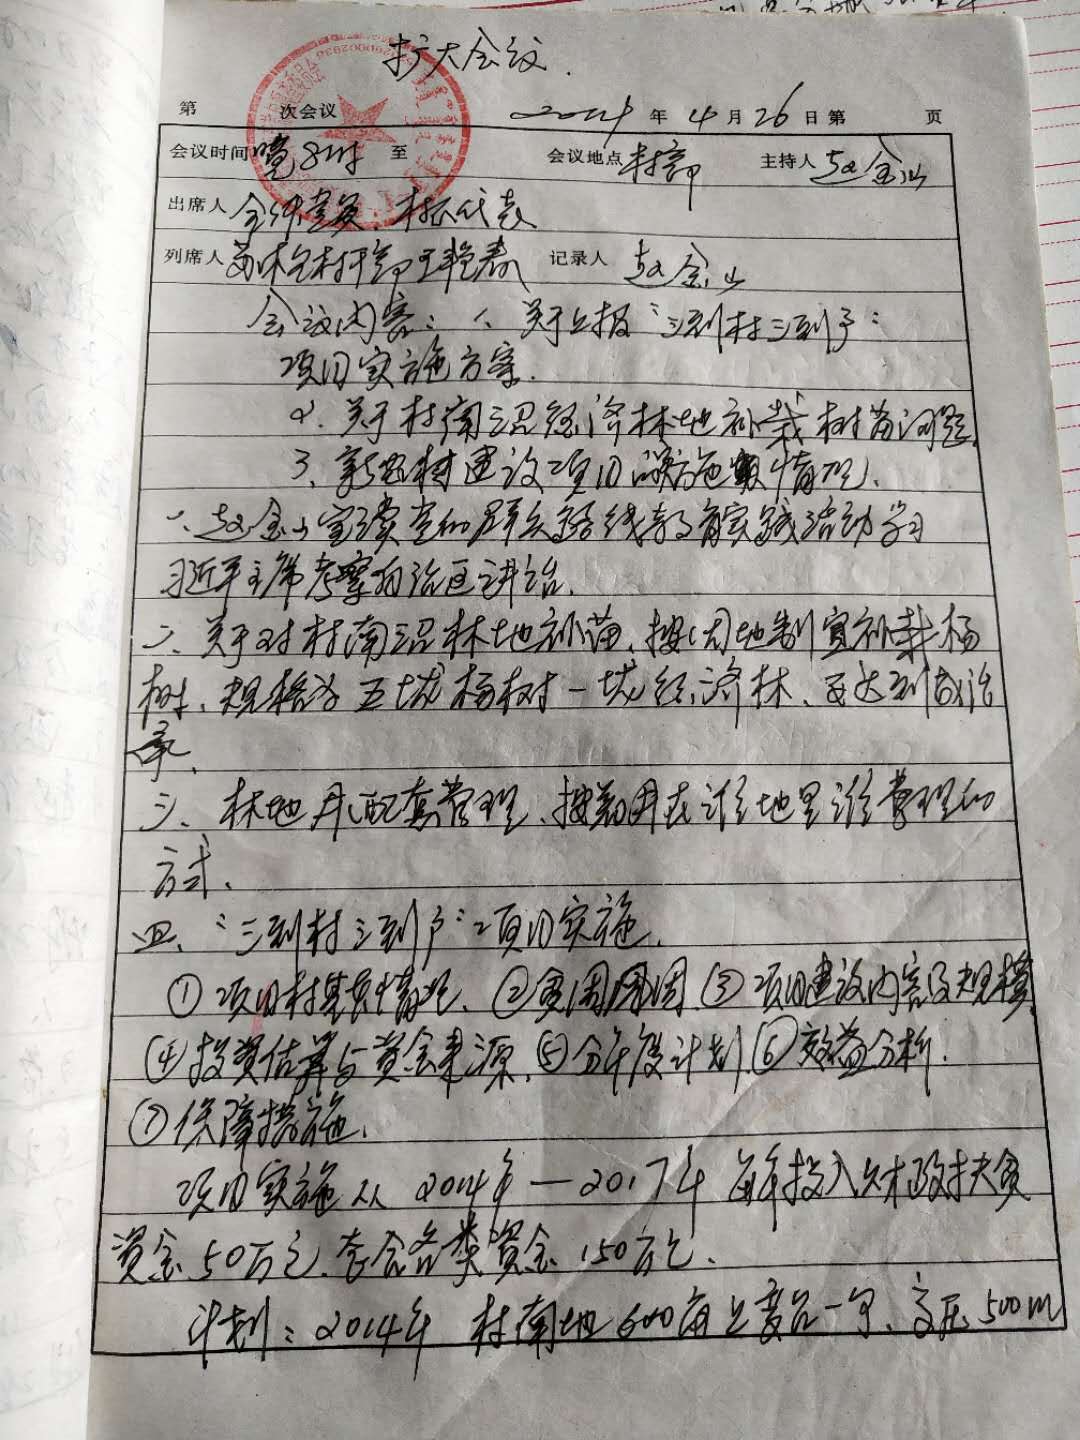 扩大会议.
第 次会议 2014年4月26日第 页
会议时间 晚8时 至 会议地点 村部 主持人 赵金山
出席人 全体党员、村民代表
列席人 村干部 王艳春 记录人 赵金山
会议内容：1、关于上报"三到村三到户"
项目实施方案.
2、关于村南沼经济林地补栽树苗问题.
3、新农村建设项目 实施 情况、
一、赵金山宣读党的群众路线教育实践活动学习
习近平主席考察自治区讲话.
二、关于对村南沼林地补苗、按因地制宜补栽杨
树、规格为五垅杨树一垅经济林、要达到成活
率、
三、林地井配套管理、按着井在谁地里谁管理的
方式、
四、"三到村三到户"项目实施、
①项目村基本情况、② ③项目建设内容及规模
④投资估算与资金来源、⑤分年度计划、⑥效益分析.
⑦保障措施、
项目实施从2014年—2017年 每年投入财政扶贫
资金50万元、整合各类资金150万元、
计划：2014年 村南地600亩上变台一台、高压500m